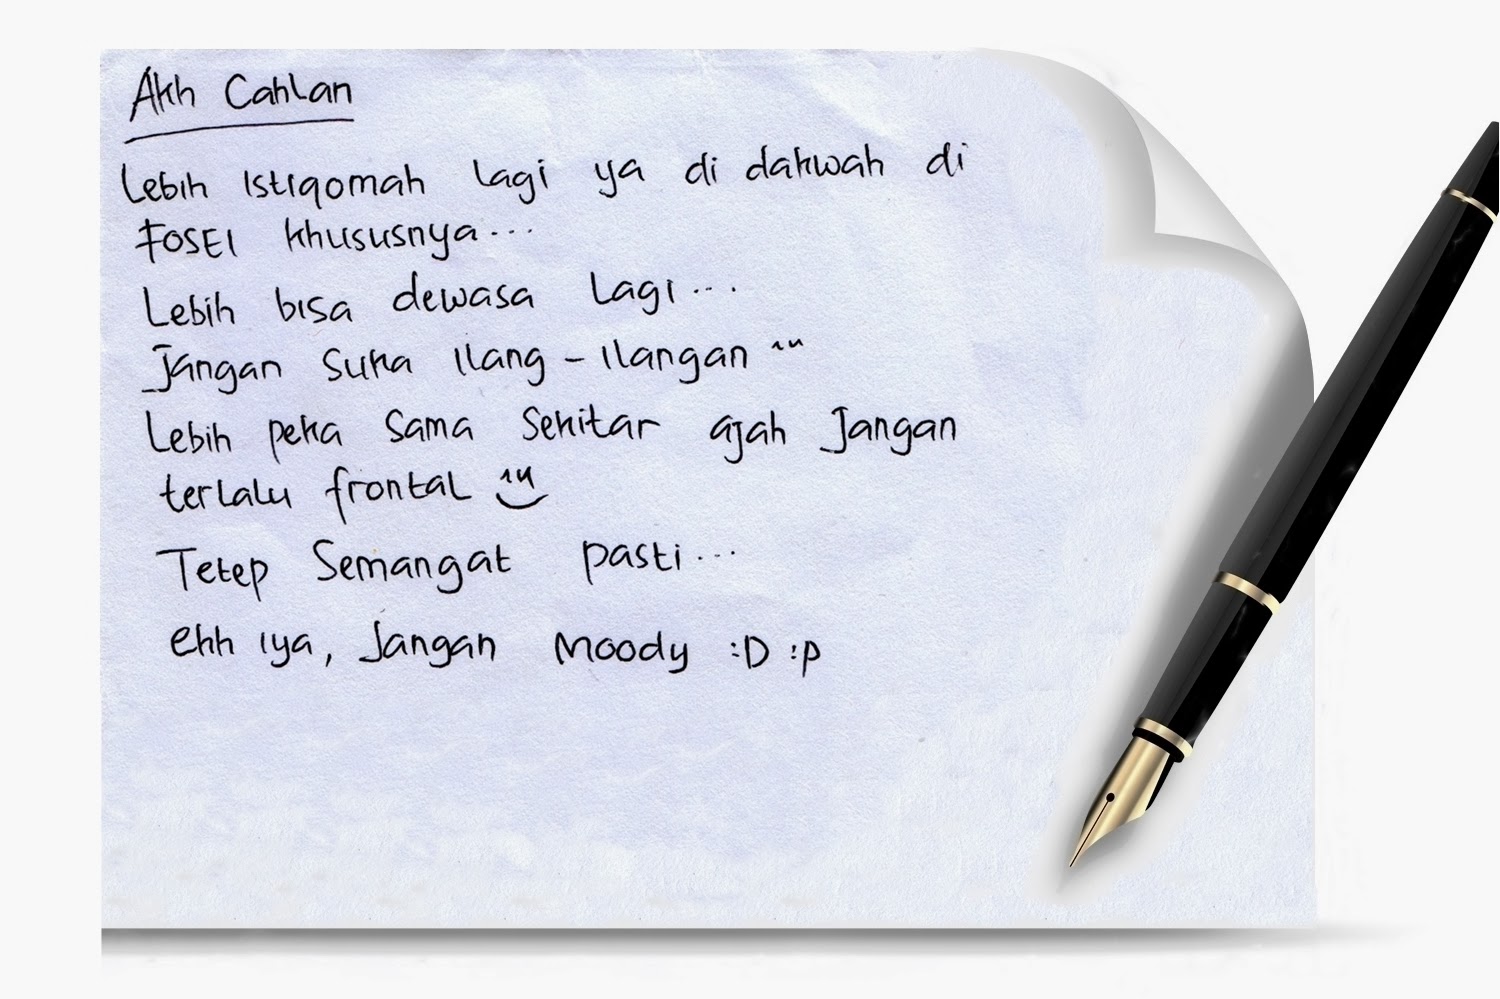 Akh Cahlan
Lebih Istiqomah Lagi ya di dakwah di
FOSEI khususnya...
Lebih bisa dewasa Lagi...
Jangan suka Ilang - Ilangan ^^
Lebih peka sama sekitar ajah Jangan
terlalu frontal ^^
Tetep Semangat pasti...
ehh iya, Jangan Moody :D :p